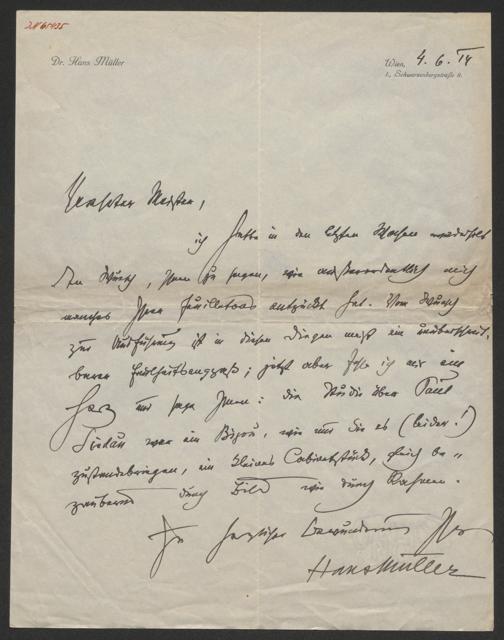 Dr. Hans Müller
Wien, 4. 6. 14
I., Schwarzenbergstraße 8.
Verehrter Meister,
ich hatte in den letzten Wochen wiederholt
den Wunsch, Ihnen zu sagen, wie außerordentlich mich
manches Ihrer Feuilletons entzückt hat. Vom Wunsch
zur Ausführung ist in diesen Dingen meist ein unüberschreit-
barer ; jetzt aber fasse ich mir ein
Herz und sage Ihnen: die Studie über Paul
Lindau war ein Bijou, wie nur Sie es (leider!)
zustandebringen, ein kleines Cabinetstück, gleich be-
zaubernd durch Bild wie durch Rahmen.
In herzlicher Bewunderung Ihr
Hans Müller